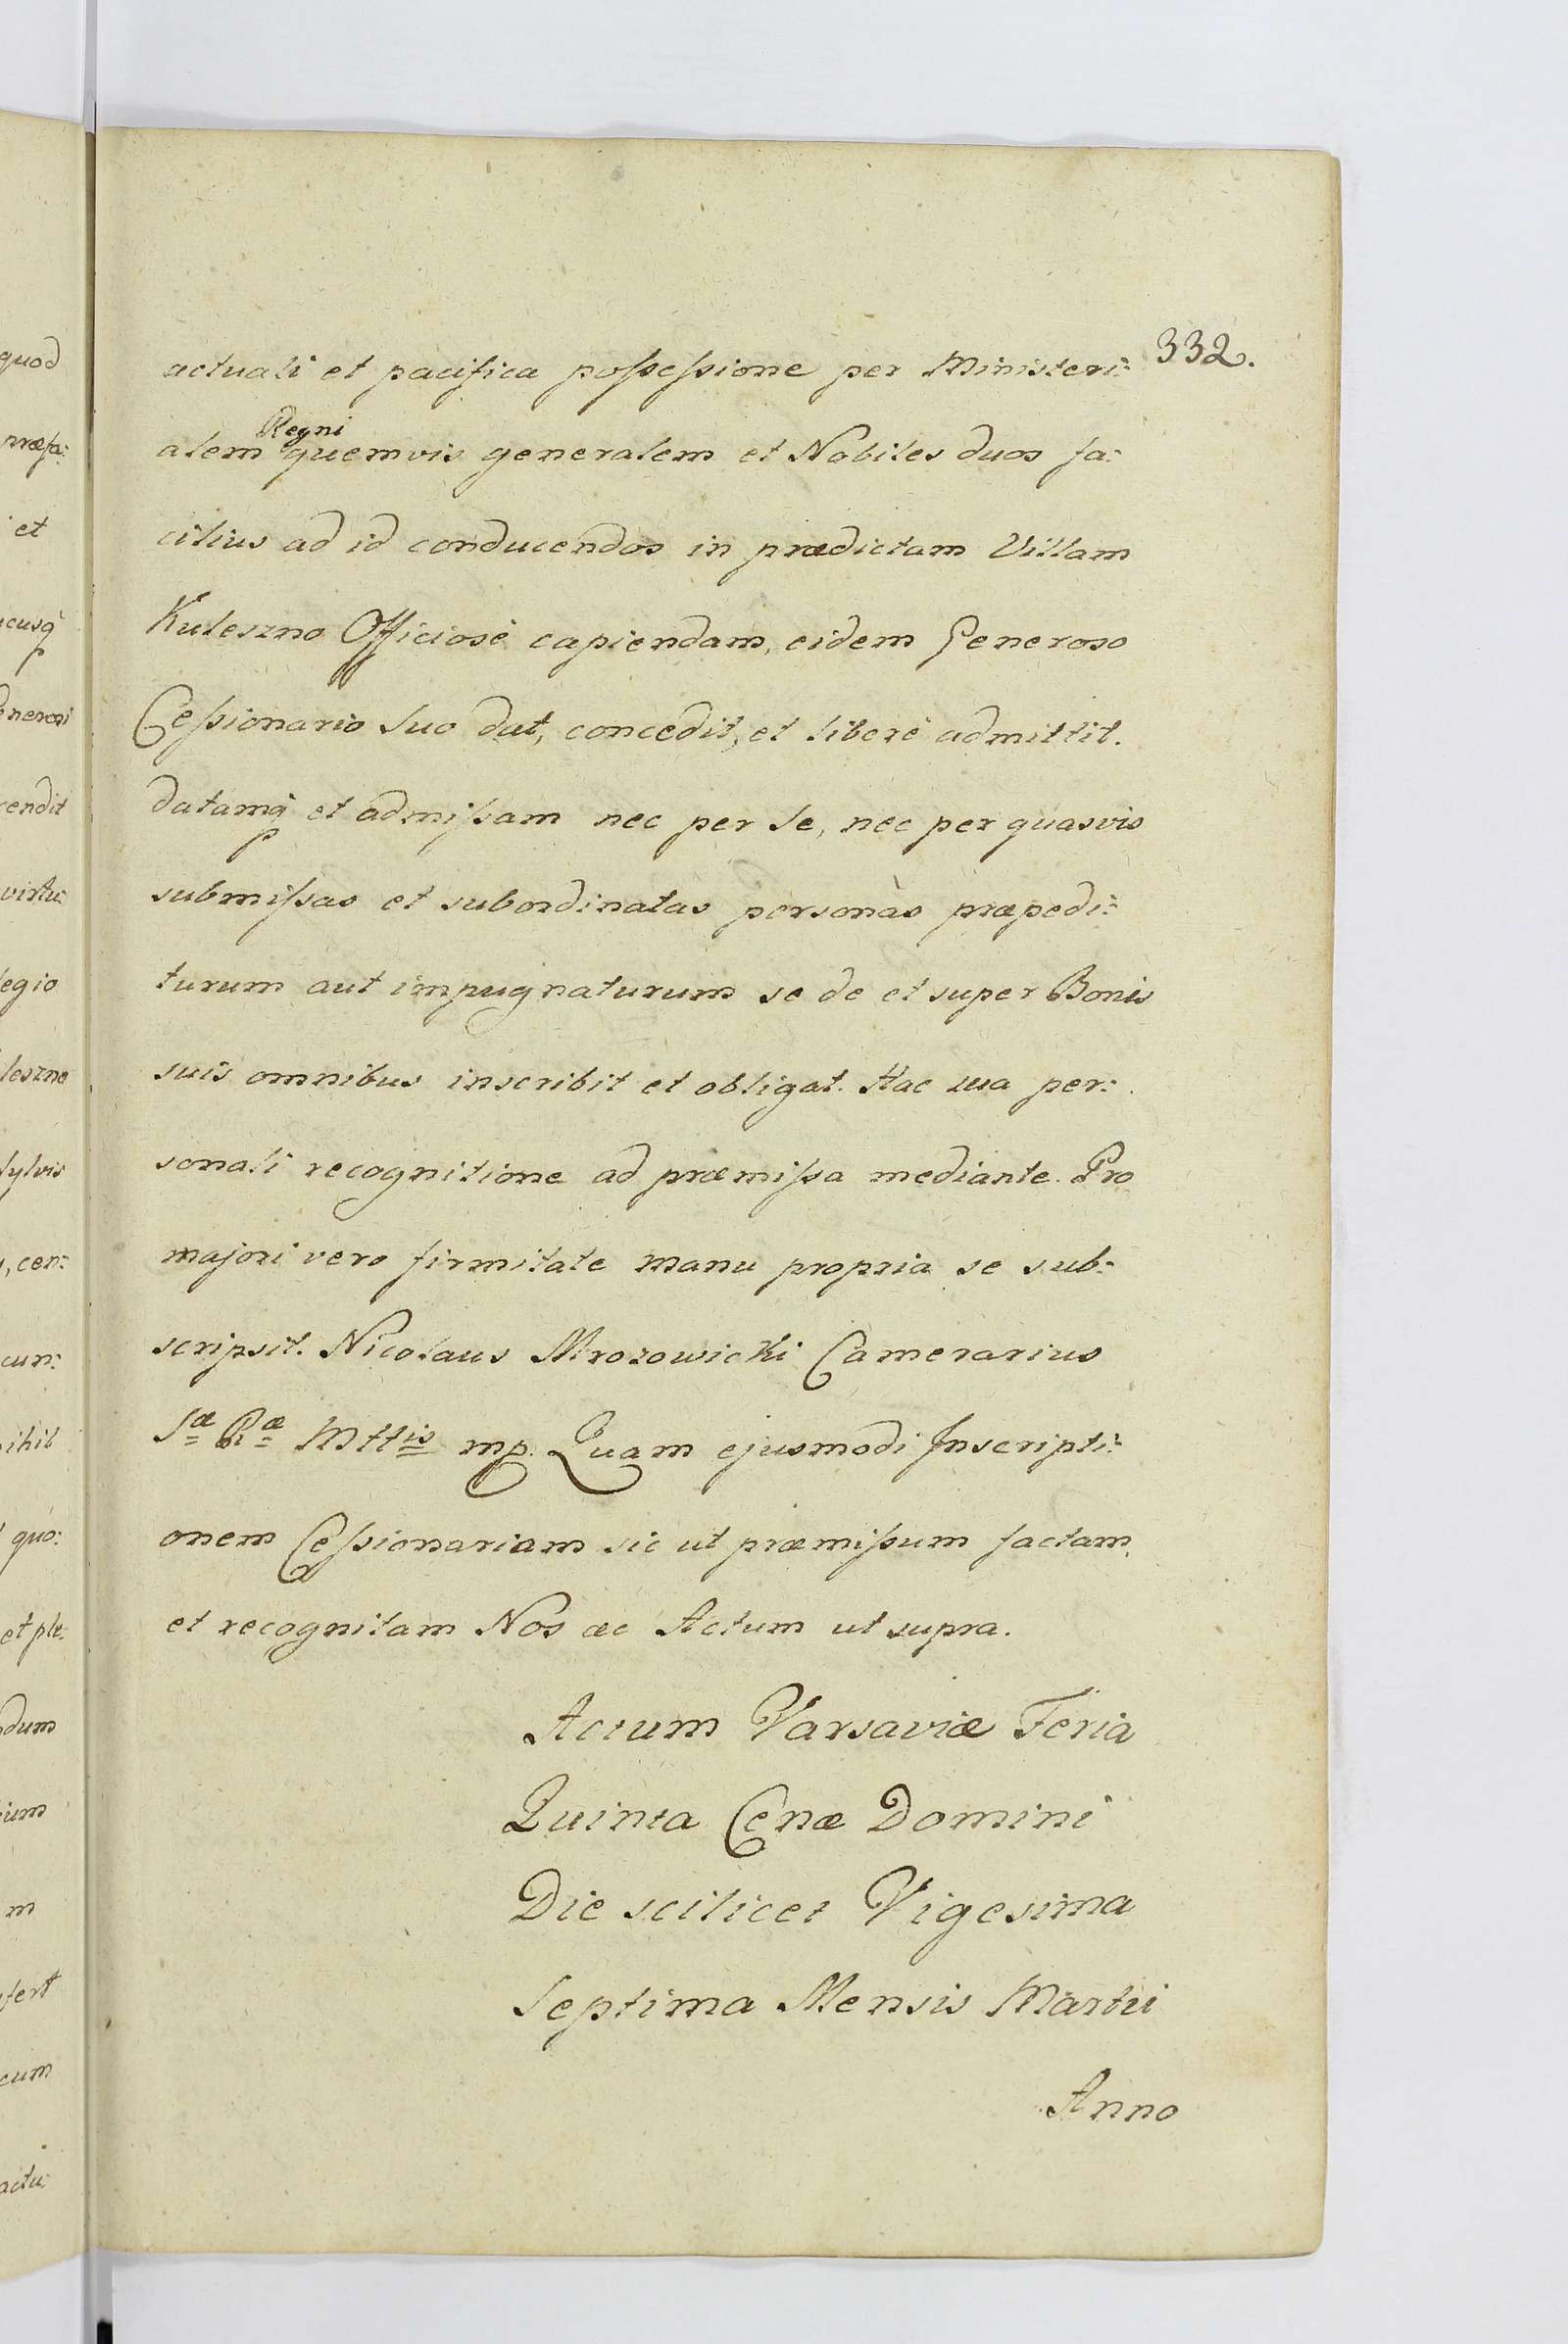 332.
actuali et pacifica poſseſsione per Ministeri:
alem Regni quemvis generalem et Nobiles duos fa:
cilius ad id conducendos in prædictam Villam
Kuleszno Officiosè capiendam, eidem Generoso
Ceſsionario suo dat, concedit, et liberè admittit.
datamq̀ et admiſsam nec per se, nec per quasvis
submiſsas et subordinatas personàs præpedi:
turum aut impugnaturum se de et super Bonis
suis omnibus inscribit et obligat. Hac sua per:
sonali recognitione ad præmiſsa mediante. Pro
majori vero firmitate manu propria se sub:
scripsit. Nicolaus Mrozowicki Camerarius
Sæ Ræ Mttis mp. Quam ejusmodi Inscripti:
onem Ceſsionariam sic ut præmiſsum factam,
et recognitam Nos ac Actum ut supra.
Actum Varsaviæ Feria
Quinta Cenæ Domini
Die scilicet Vigesima
Septima Mensis Martii
Anno
quod
præfa:
et
cusq̀
nerosi
endit
virtu:
legio
leszno
sylvis
, cen:
cun:
ihil
quo:
et ple:
dum
ium
m
fert
cum
actu: